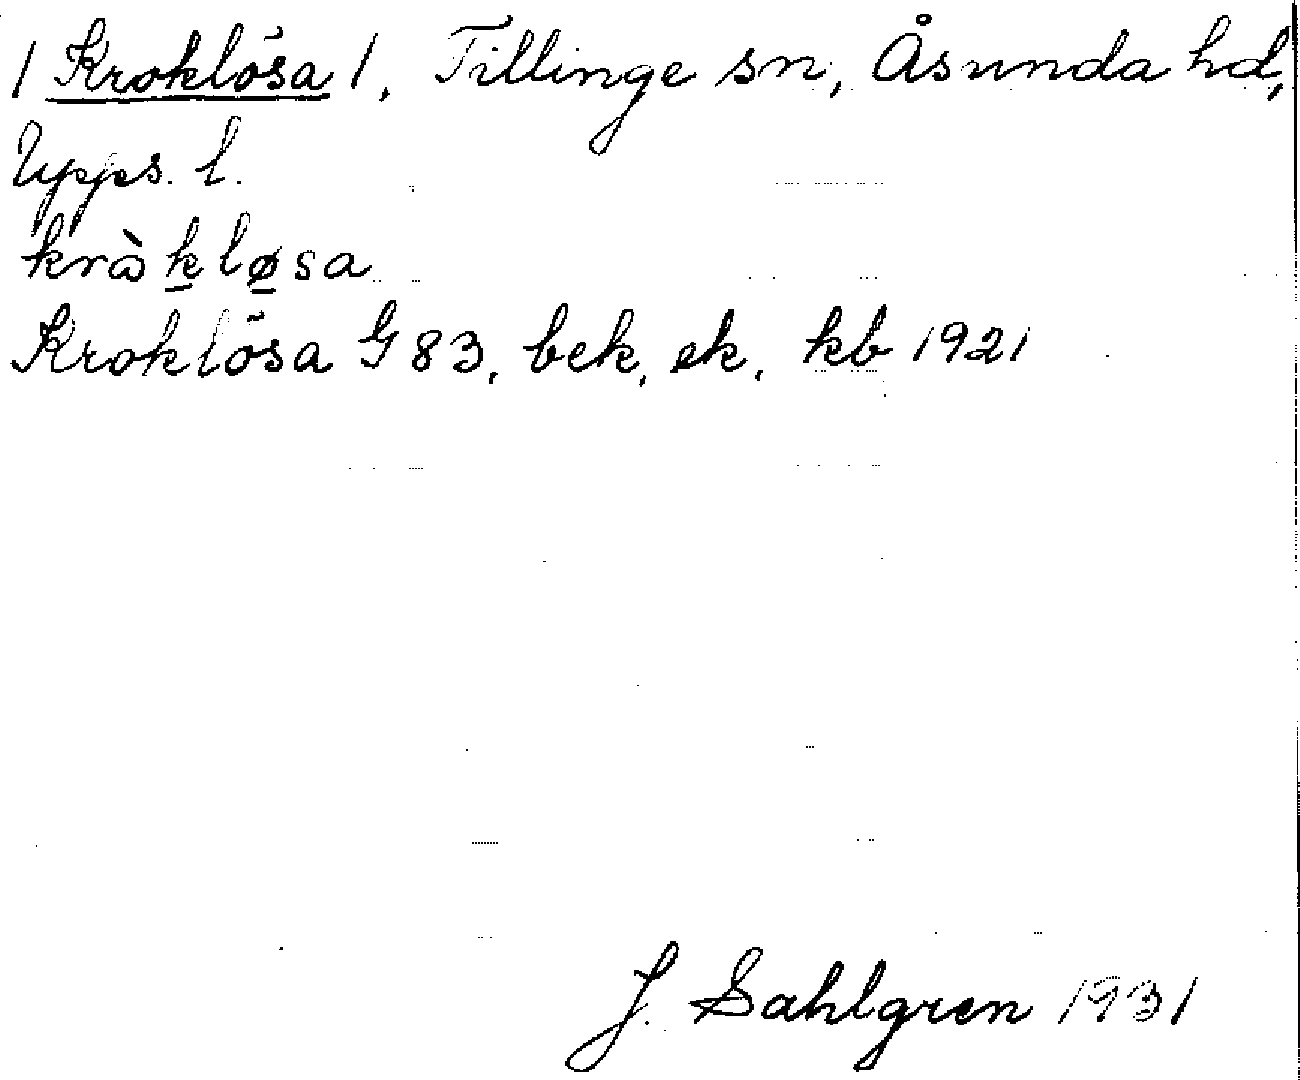 / Kroklösa /, Tillinge sn, Åsunda hd,
Upps. l.
kròkløsa
Kroklösa G 83, bek, ek, kb 1921
J. Sahlgren 1931